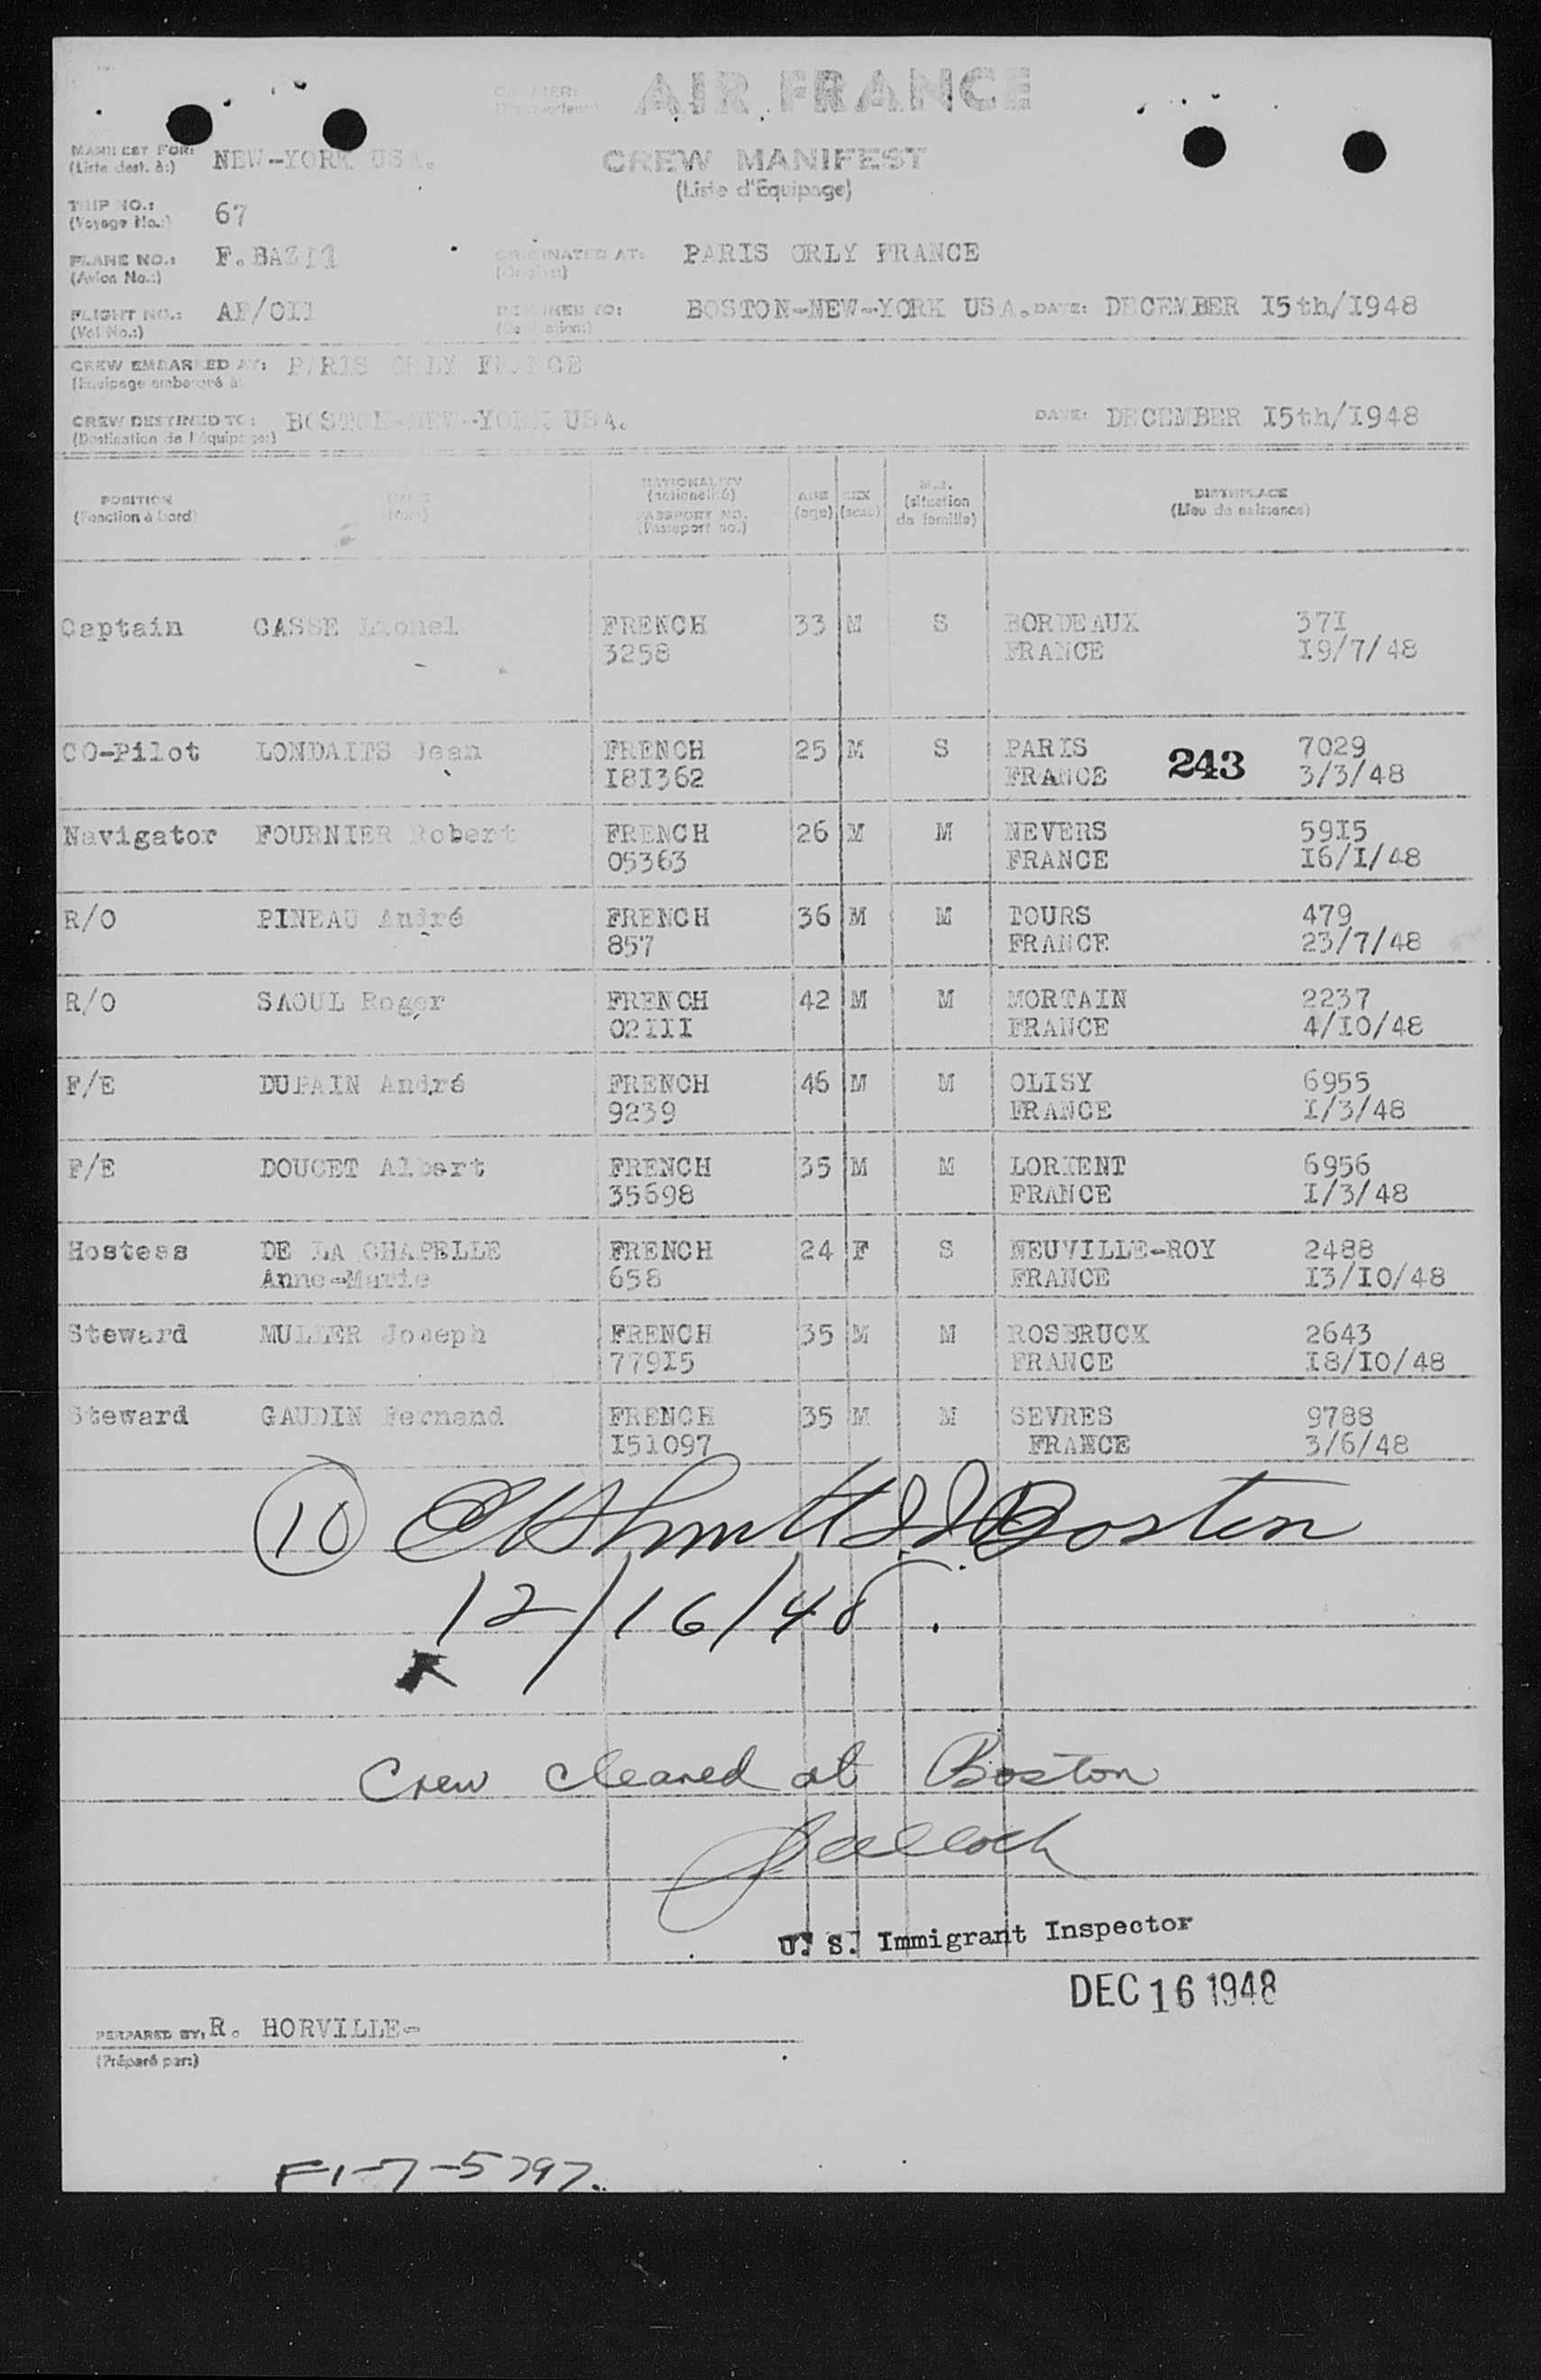 CARRIER: AIR FRANCE
(Transporteur)
MANIFEST FOR: NEW-YORK USA.
(Liste dest. à:)
CREW MANIFEST
(Liste d'Équipage)
TRIP NO.: 67
(Voyage No.:)
PLANE NO.: F.BAZ
(Avion No.:)
ORIGINATED AT: PARIS ORLY FRANCE
(Origine:)
FLIGHT NO.: AF/OII
(Vol No.:)
DESTINED TO: BOSTON-NEW-YORK USA. DATE: DECEMBER I5th/I948
(Destination:)
CREW EMBARKED AT: PARIS ORLY FRANCE
(Equipage embarqué à:
CREW DESTINED TO: BOSTON-NEW-YORK USA. DATE: DECEMBER I5th/I948
(Destination de l'équipage:)
POSITION NAME NATIONALITY AGE SEX M.S. BIRTHPLACE
(Fonction à bord) (Nom) (nationalité) (age) (sexe) (situation de famille) (Lieu de naissance)
PASSPORT NO.
(Passeport no.)
Captain CASSE Lionel FRENCH 33 M S BORDEAUX 37I
3258 FRANCE I9/7/48
CO-Pilot LONDAITS Jean FRENCH 25 M S PARIS 7029
I8I362 FRANCE 243 3/3/48
Navigator FOURNIER Robert FRENCH 26 M M NEVERS 59I5
05363 FRANCE I6/I/48
R/O PINEAU André FRENCH 36 M M TOURS 479
857 FRANCE 23/7/48
R/O SAOUL Roger FRENCH 42 M M MORTAIN 2237
02III FRANCE 4/IO/48
F/E DUPAIN André FRENCH 46 M M OLISY 6955
9239 FRANCE I/3/48
F/E DOUCET Albert FRENCH 35 M M LORIENT 6956
35698 FRANCE I/3/48
Hostess DE LA CHAPELLE FRENCH 24 F S NEUVILLE-ROY 2488
Anne-Marie 658 FRANCE I3/IO/48
Steward MULLER Joseph FRENCH 35 M M ROSBRUCK 2643
779I5 FRANCE I8/IO/48
Steward GAUDIN Fernand FRENCH 35 M M SEVRES 9788
I51097 FRANCE 3/6/48
10 Boston
12/16/48.
Crew cleared at Boston
U. S. Immigrant Inspector
DEC 16 1948
PERPARED BY: R. HORVILLE-
(Préparé par:)
F1-7-5797.